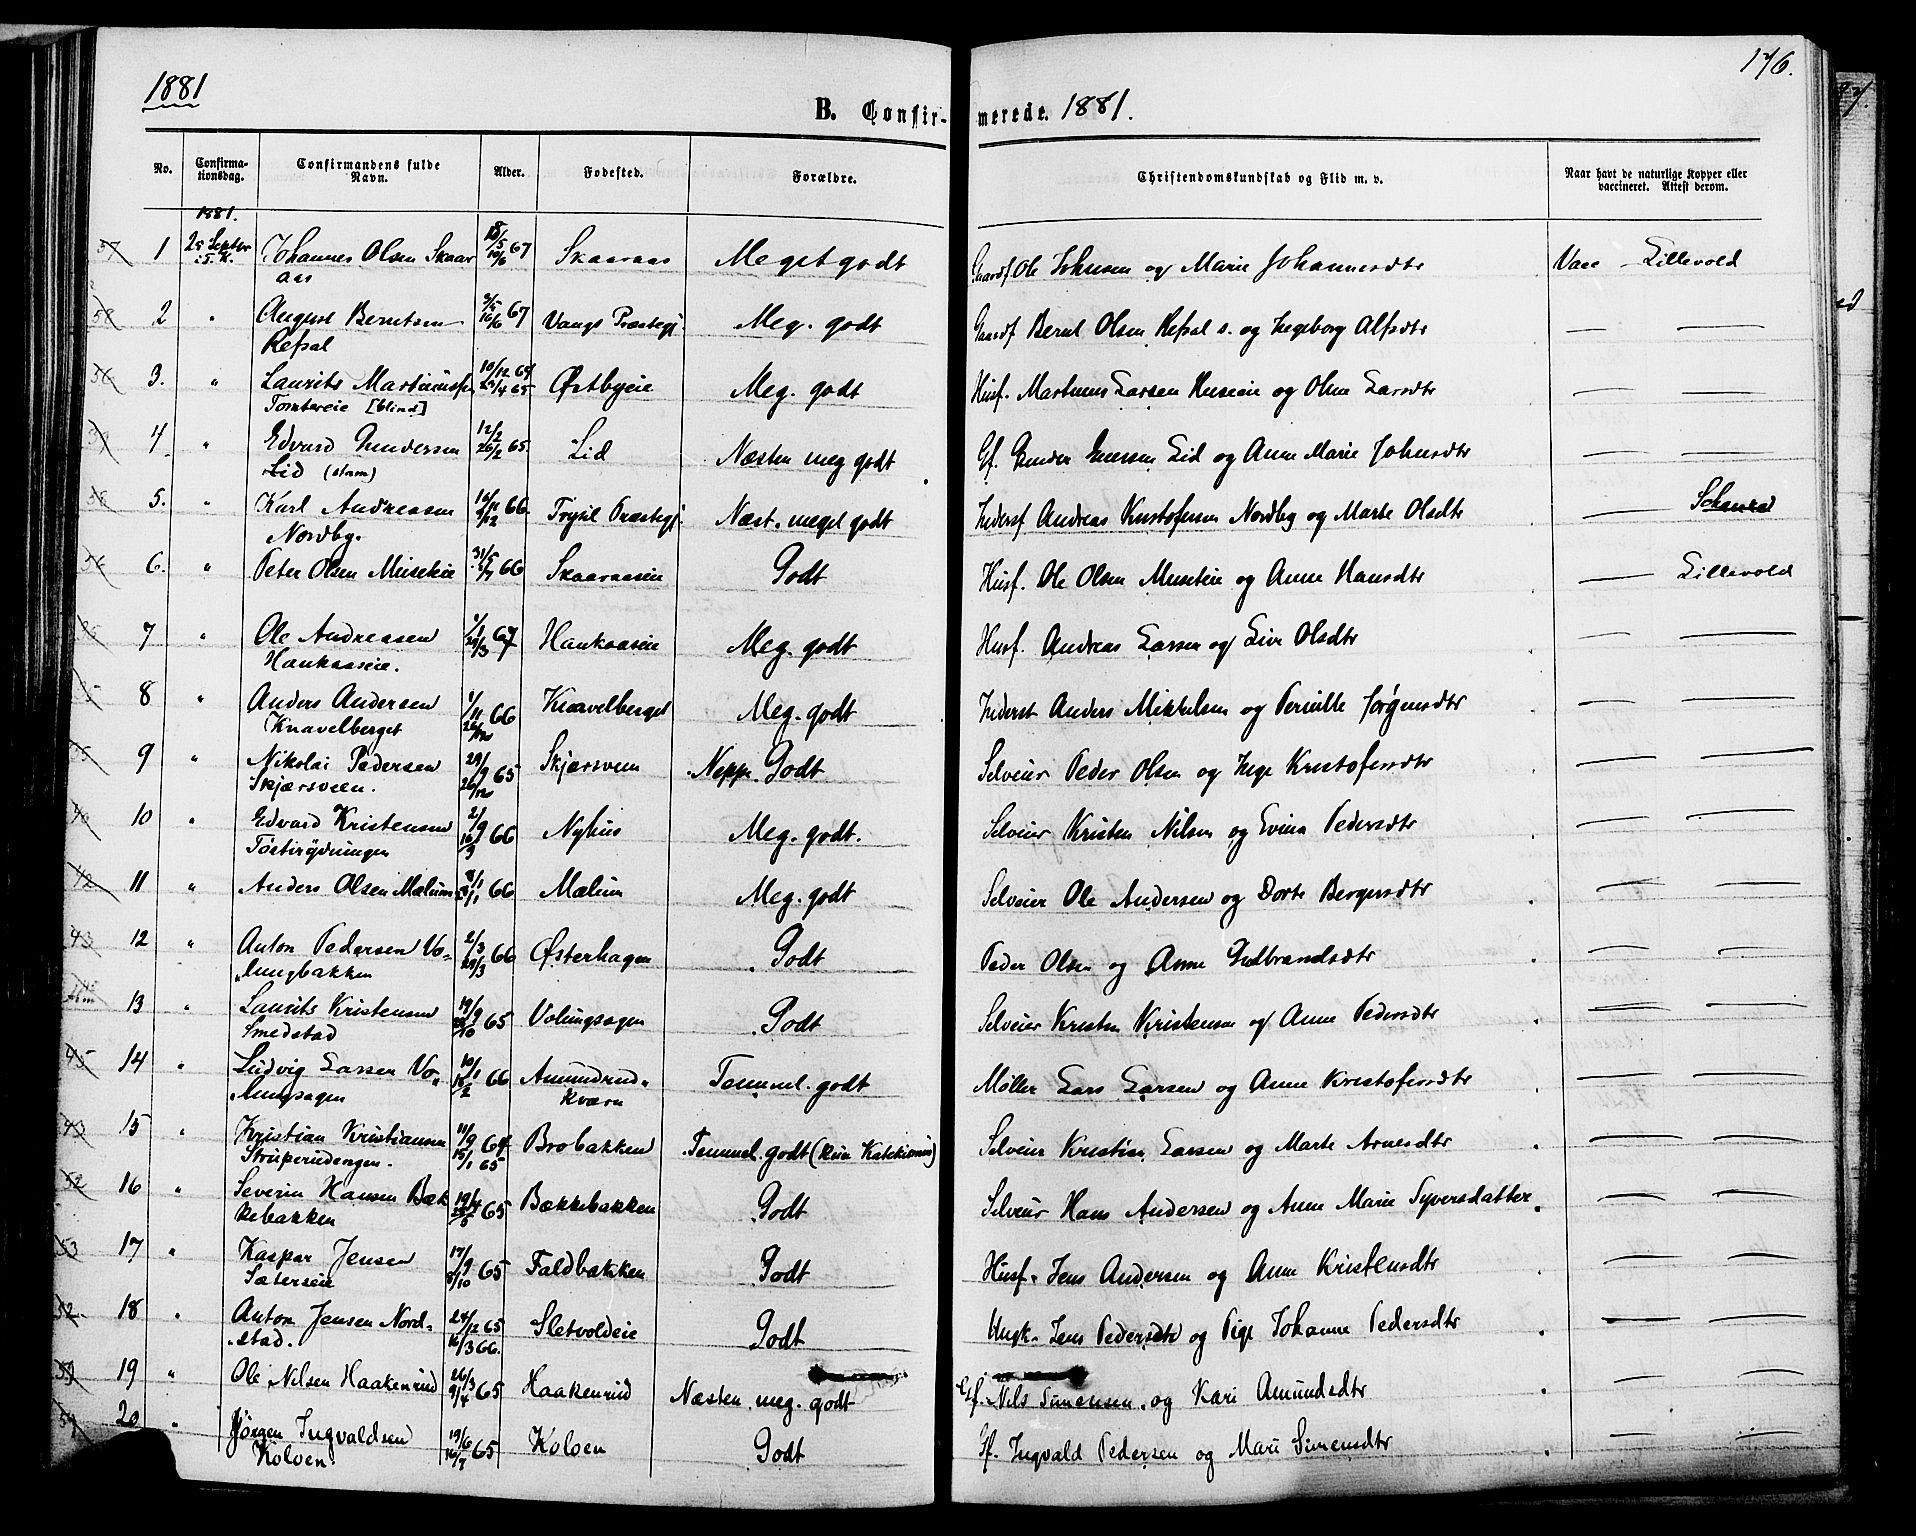 1881
B. Confir-
merede. 1881.
176.
No.
Confirma-
tionsdag.
Confirmandens fulde
Navn.
Alder.
Fødested.
Forældre.
Christendomskundskab og Flid m. v.
Naar havt de naturlige Kopper eller
vaccineret. Attest derom.
1881.
1 25 Septbr Johannes Olsen Skaar 67 Skaaraas Meget godt Gaardf Ole Johnsen og Marie Johannesdtr Vacc Lillevold
aas
2 " August Berntsen 67 Vangs Præstegj. Meg. godt Gaardf Bernt Olsen Refsal s. og Ingeborg Alfsdtr — —
Refsal
3. " Laurits Martinussen 10/12 64 Østbyeie Meg. godt Husf. Martinus Larsen Huseeie og Oline Larsdtr — —
Tomtereie [blind] 23/4 65
4 " Edvard Gundersen 12/2 65. Lid Næsten meg godt Gf. Gunder Lid og Anne Marie Johnsdtr — —
Lid (stam) 26/2
5. " Karl Andreassen 66 Trysil Præstegj. Næst. meget godt Inderst Andreas Kristofersen Nordby og Marte Olsdtr —
Nordby.
6. " Peter Olsen Musekeie 31/5 66 Skaaraaseie Godt Husf. Ole Olsen og Anne Hansdtr — Lillevold
7 " Ole Andreasen 67 Hankaaseie Meg. godt Husf. Andreas Larsen og Live Olsdtr — —
Hankaaseie.
8 " Anders Andersen 1/11 66 Knavelberget Meg. godt Inderst Anders Mikkelsen og Pernille Jørgensdtr — —
Knavelberget 26/12
9 " Nikolai Pedersen 29/9 65 Skjærsveen Neppe Godt Selveier Peder Olsen og Inge Kristofersdtr — —
Skjærsveen. 26/12
10 " Edvard Kristensen 2/9 66 Nyhus Meg. godt. Selveier Kristen Nilsen og Evina Pedersdtr — —
11 " Anders Olsen Mælum 66 Mælum Meg. godt Selveier Ole Andersen og Dorte Bergersdtr — —
12 " Anton Pedersen Vo- 2/3 66 Østerhagen Godt Peder Olsen og Anne Gudbrandsdtr — —
lungbakken 29/3
13 " Laurits Kristensen 19/9 65 Volungsagen Godt Selveier Kristen Kristensen og Anne Pedersdtr — —
Smedstad
14 " Ludvig Larsen Vo- 10/1 66 Amundrud- Temmel. godt Møller Lars Larsen og Anne Kristofersdtr — —
lungsagen 18/2 kværn
15 " Kristian Kristiansen 11/9 64 Brobakken Temmel. godt (kun Katekismus) Selveier Kristian Larsen og Marte Arnesdtr — —
Struperudengen. 15/1 65
16 " Severin Hansen Bæk 19/4 65 Bækkebakken Godt Selveier Hans Andersen og Anne Marie Syversdatter — —
kebakken
17 " Kaspar Jensen 17/9 65 Faldbakken Godt Husf. Jens Andersen og Anne Kristensdtr — —
Sætereie 8/10
18 " Anton Jensen Nord- 24/12 65 Sletvoldeie Godt Ungk. Jens Pedersen og Pige Johanne Pedersdtr — —
stad. 16/3 66.
19 " Ole Nilsen Haakenrud 26/3 65 Haakenrud Næsten meg. godt Gf. Nils Simensen og Kari Amundsdtr — —
9/4
20 " Jørgen Ingvaldsen 19/6 65 Kolven Godt Gf. Ingvald Pedersen og Mari Simensdtr — —
Kolven 16/7